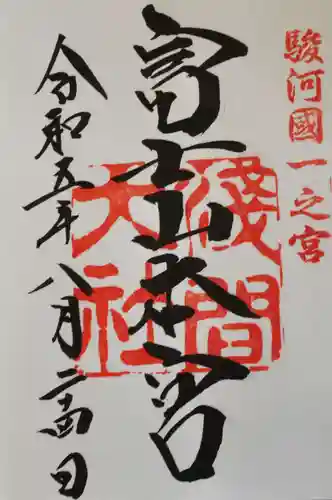 駿河國一之宮
富士山本宮
淺間大社
令和五年八月二十四日